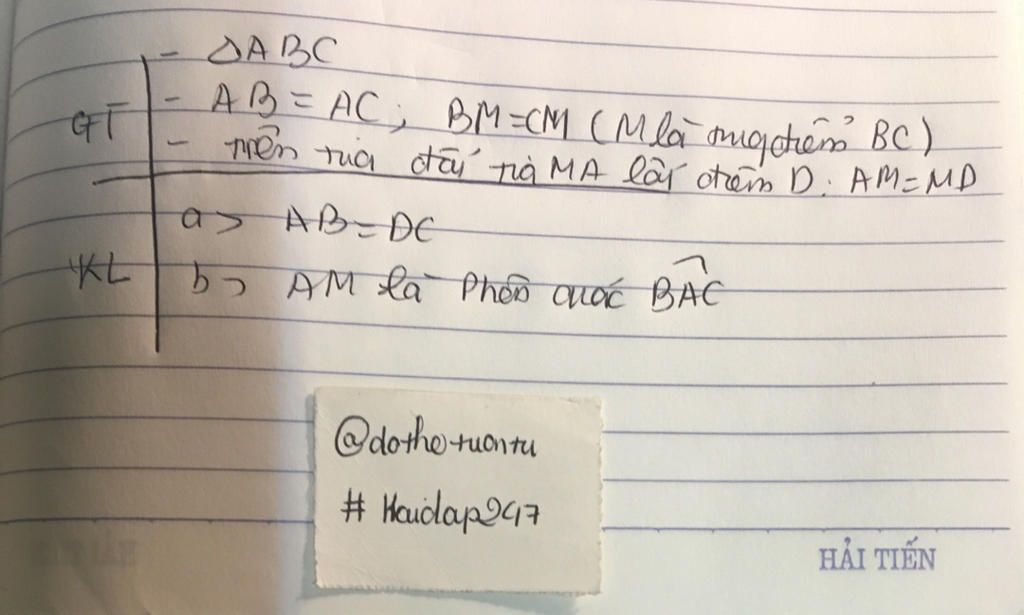 - ΔABC
GT - AB = AC; BM = CM (M là trung điểm BC)
- trên tia đối tia MA lấy điểm D: AM = MD
a> AB = DC
KL b> AM là phân giác BAC
@dothetuantu
# Hoidap247
HẢI TIẾN